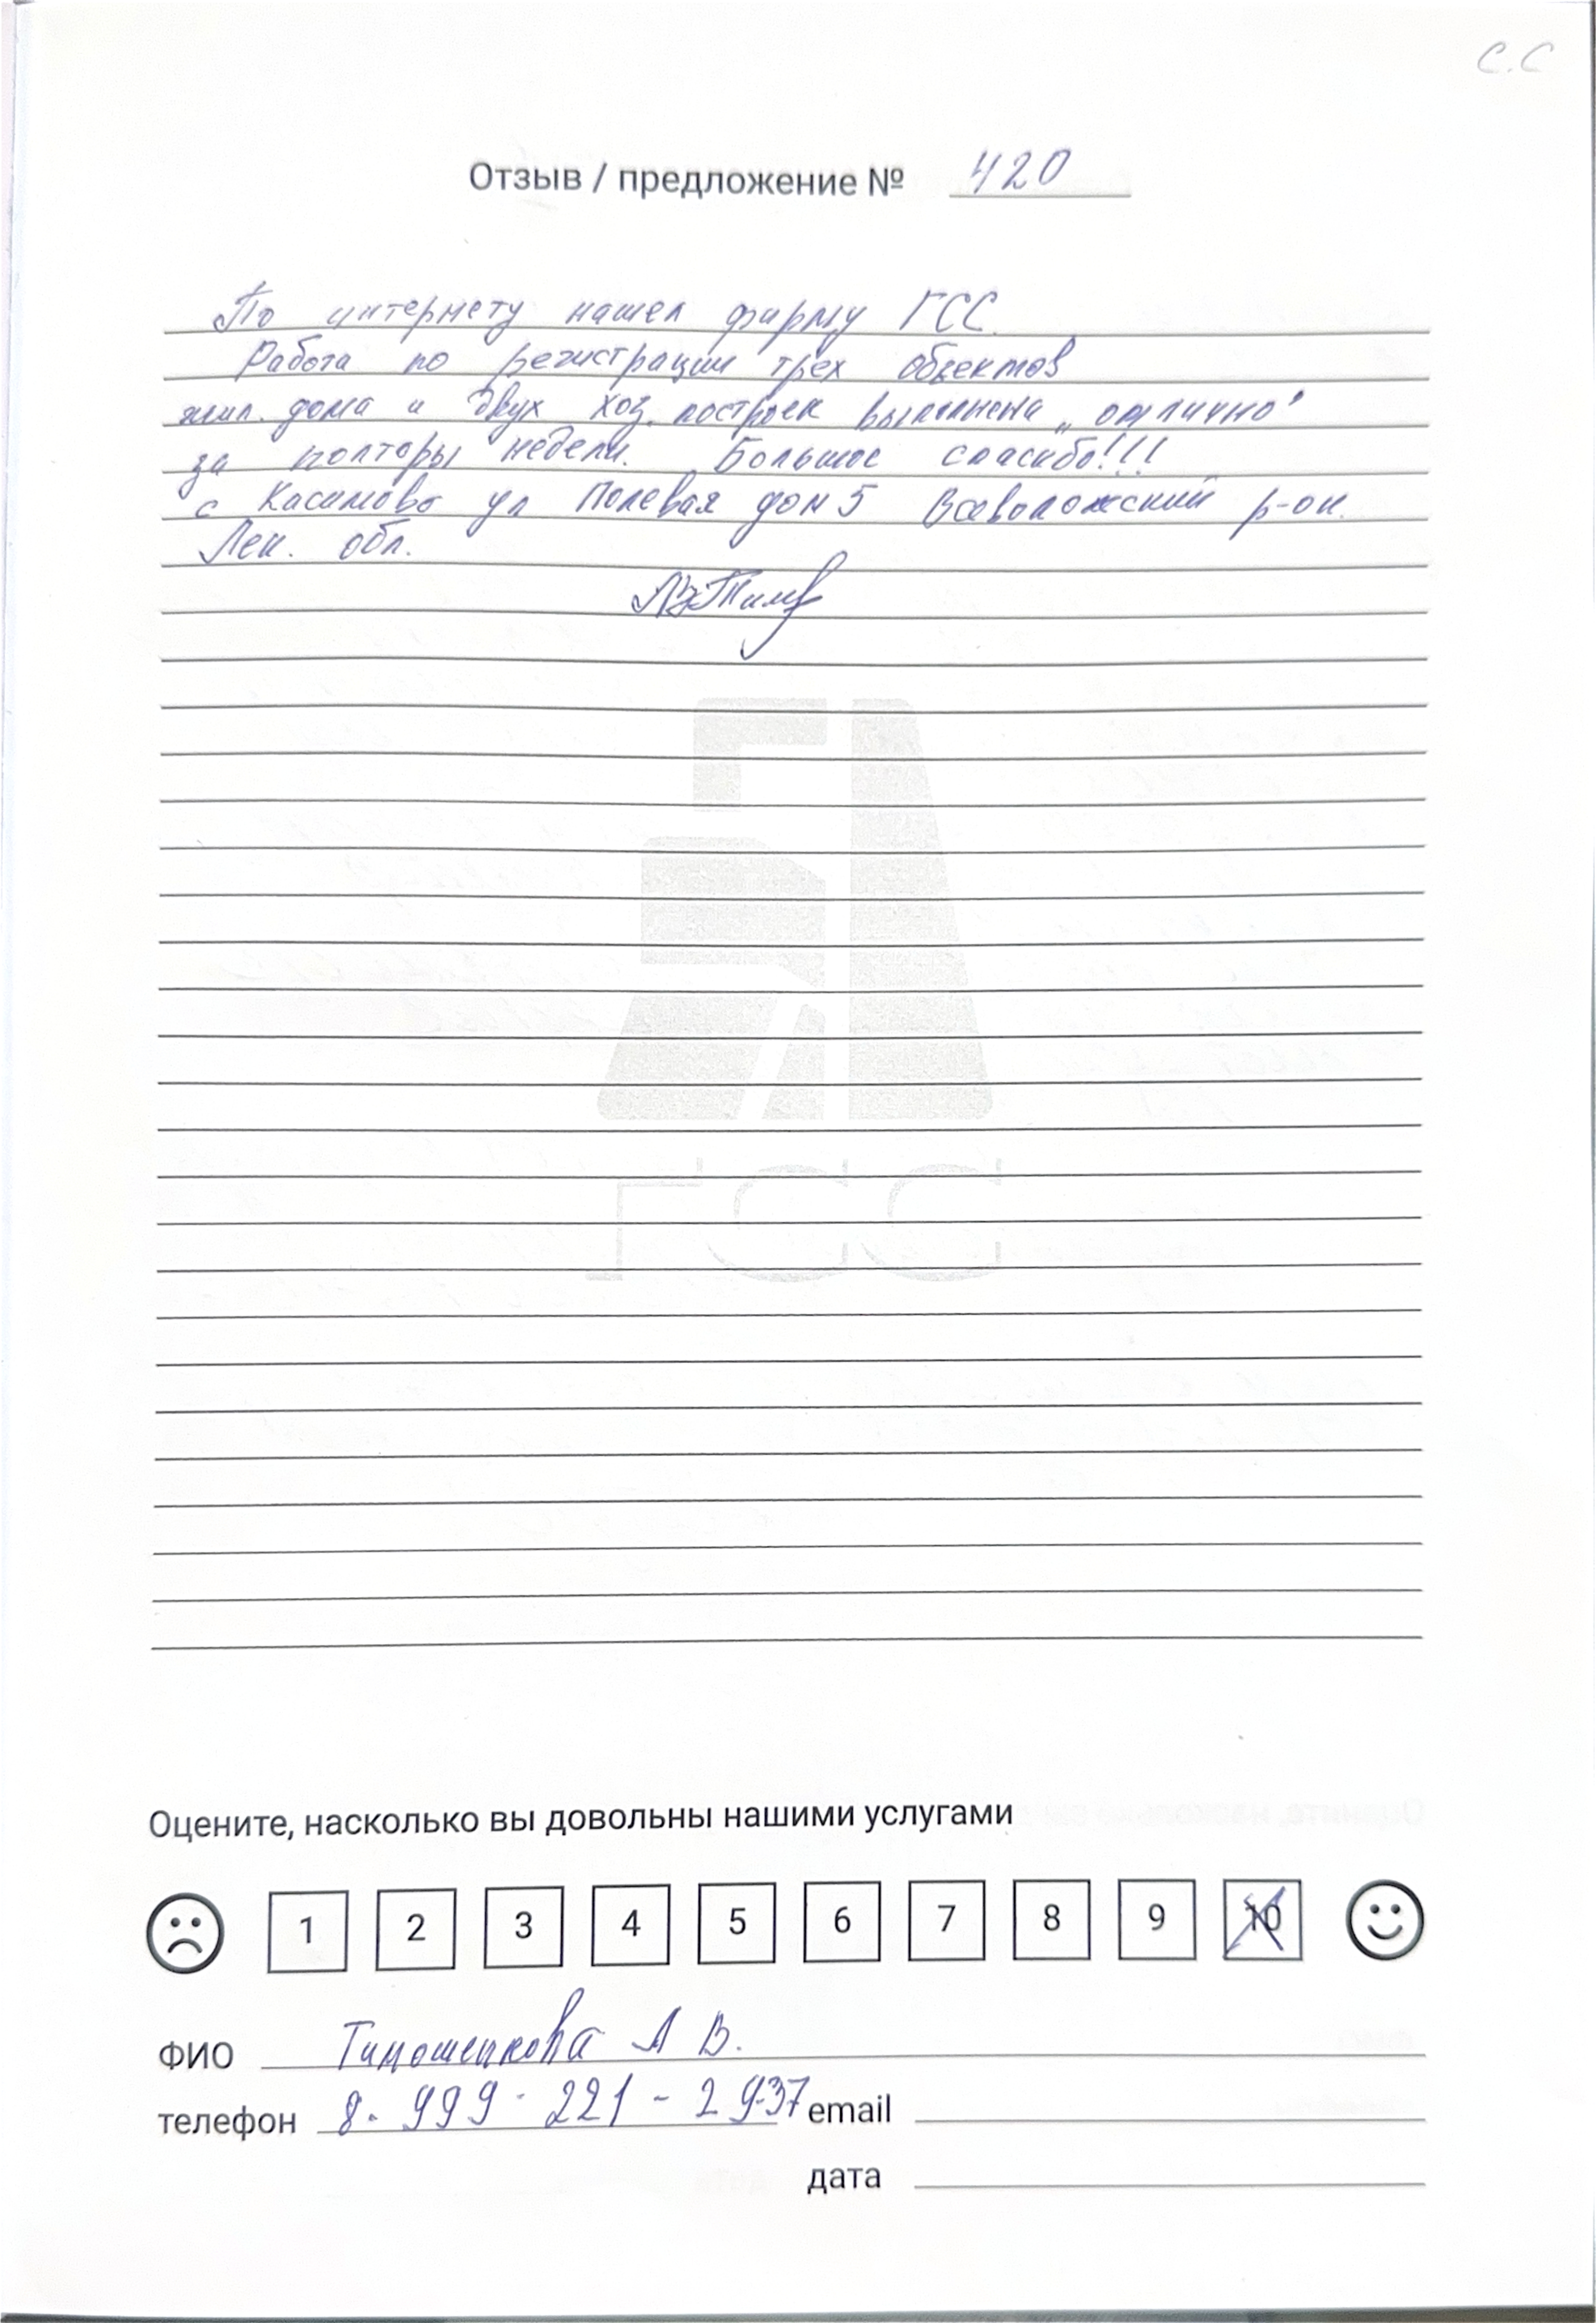 С.С
Отзыв / предложение № 420
По интернету нашел фирму ГСС.
Работа по регистрации трех объектов
жил. дома и двух хоз. построек выполнена „отлично"
за полторы недели. Большое спасибо!!!
с Касимово ул Полевая дом 5 Всеволожский р-он.
Лен. обл.
ГСС
Оцените, насколько вы довольны нашими услугами
1 2 3 4 5 6 7 8 9 10
ФИО Тимошенкова А В.
телефон 8. 999 - 221 - 2937 email
дата